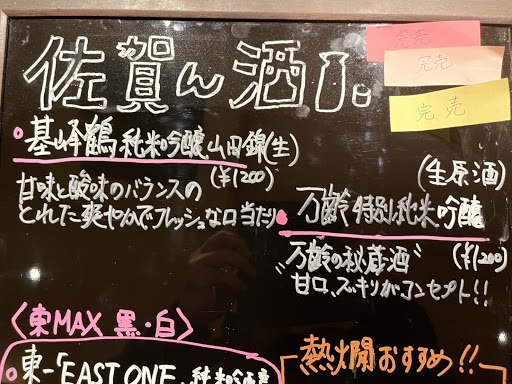 佐賀ん酒
完売
完売
完売
基峰鶴 純米吟醸 山田錦(生)
(¥1200)
甘味と酸味のバランスの
とれた爽やかでフレッシュな口当たり
(生原酒)
万齢 特別純米吟醸
"万齢の秘蔵酒" (¥1200)
甘口、ズキリがコンセプト!!
〈東MAX 黒・白〉
東一「EAST ONE
熱燗おすすめ!!